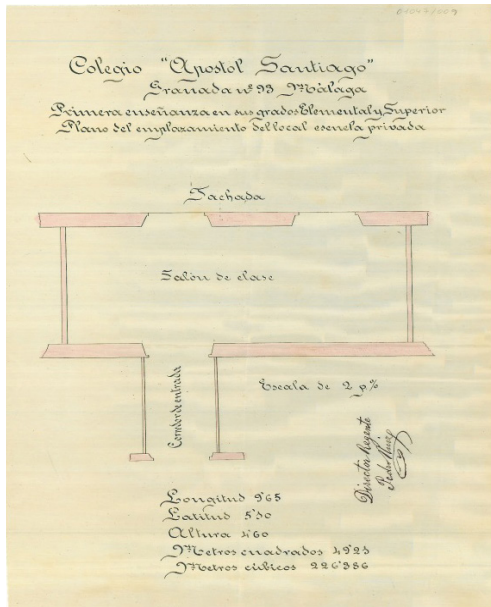 Colegio "Apostol Santiago"
Granada nº 93 Málaga
Primera enseñanza en sus grados Elemental y Superior
Plano del emplazamiento del local escuela privada
Fachada
Salón de clase
Corredor de entrada
Escala de 2 p%
Director Regente
Pedro
Longitud 9'65
Latitud 5'10
Altura 4'60
Metros cuadrados 49'23
Metros cúbicos 226'386